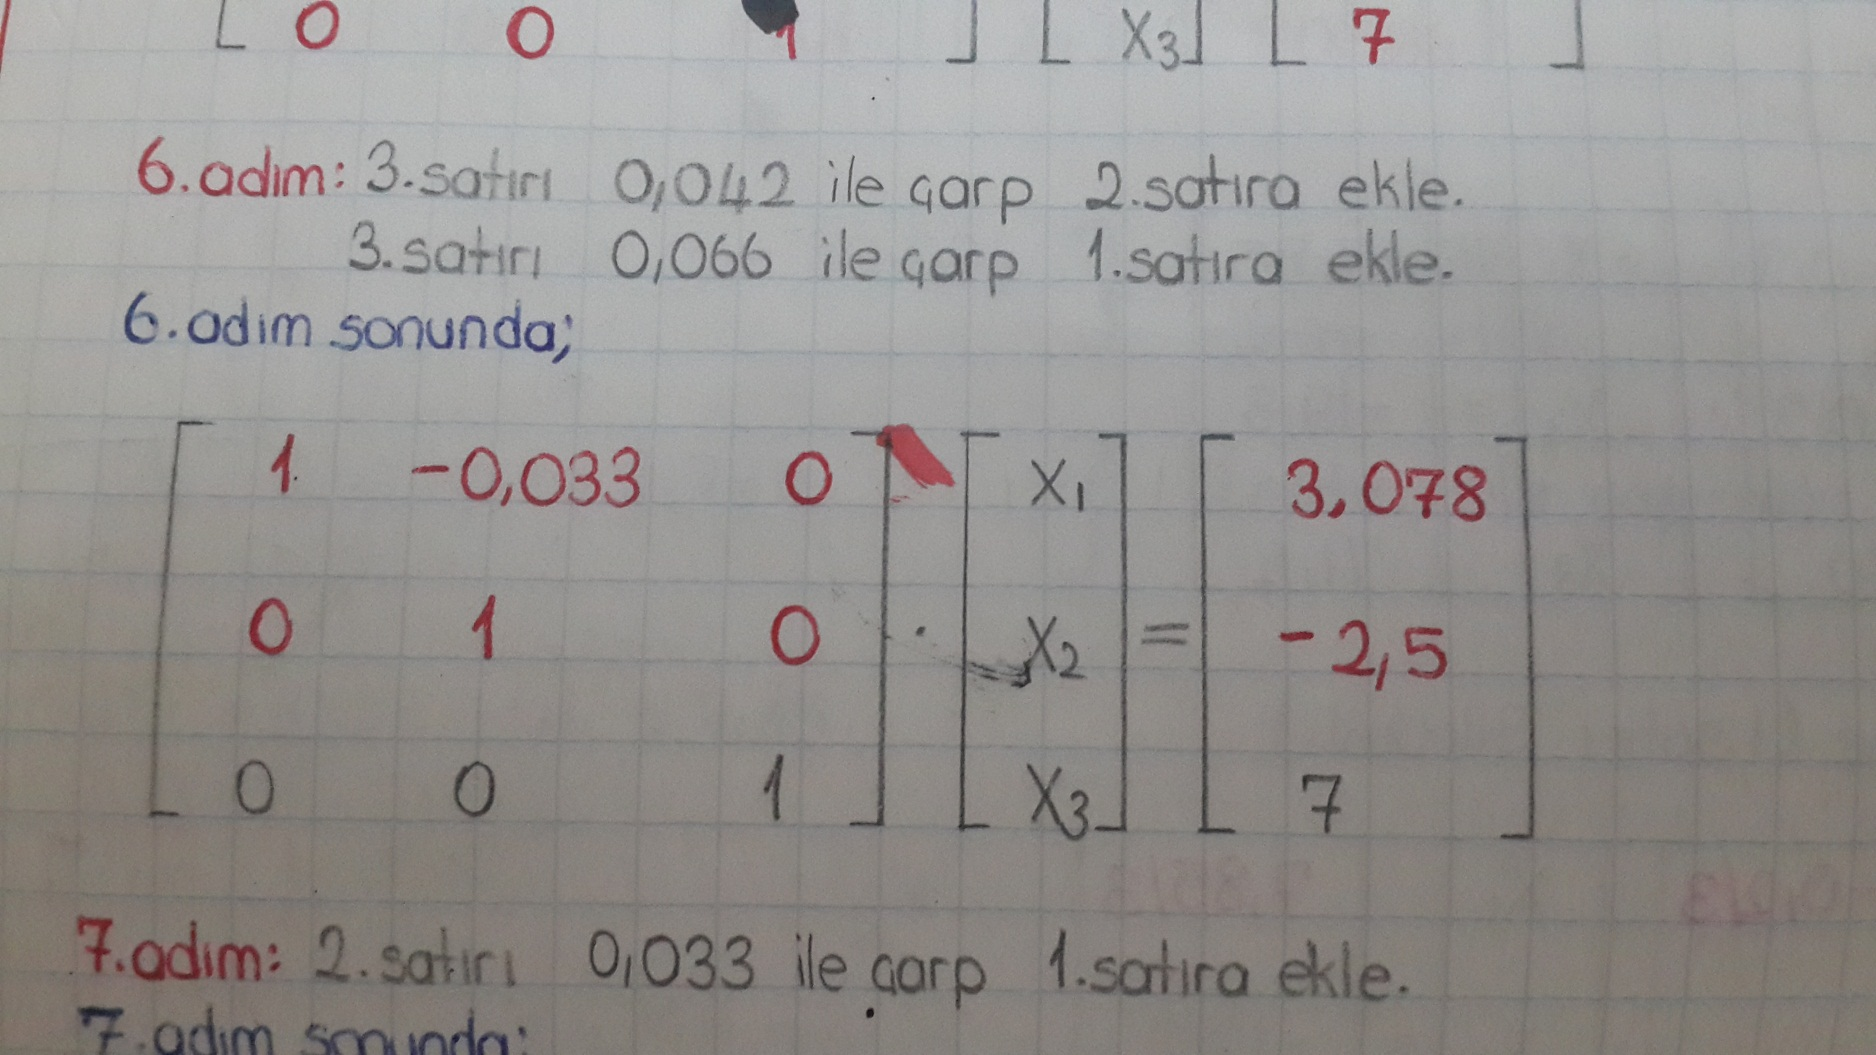 [ 0 0 1 ] [ X₃ ] [ 7 ]
6.adım: 3.satırı 0,042 ile çarp 2.satıra ekle.
3.satırı 0,066 ile çarp 1.satıra ekle.
6.adım sonunda;
[ 1 -0,033 0 ] [ X₁ ] [ 3,078 ]
[ 0 1 0 ] . [ X₂ ] = [ -2,5 ]
[ 0 0 1 ] [ X₃ ] [ 7 ]
7.adım: 2.satırı 0,033 ile çarp 1.satıra ekle.
7.adım sonunda;